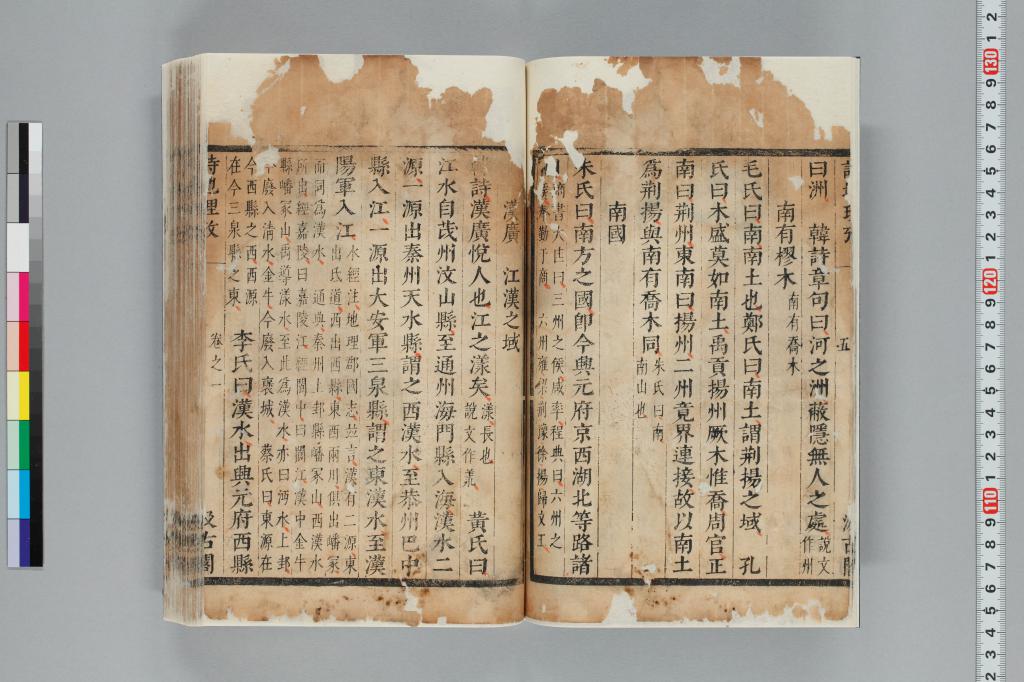 曰洲 韓詩章句曰河之洲蔽隱無人之處說文作州
南有樛木南有喬木
毛氏曰南南土也鄭氏曰南土謂荆揚之域 孔
氏曰木盛莫如南土禹貢揚州厥木惟喬周官正
南曰荆州東南曰揚州二州竟界連接故以南土
爲荆揚與南有喬木同朱氏曰南南山也
南國
朱氏曰南方之國卽今興元府京西湖北等路諸
三州之侯咸率程典曰六州之
六州雍梁荆豫徐揚歸文王
漢廣 江漢之域
詩漢廣悅人也江之漾矣漾長也說文作羕 黃氏曰
江水自茂州汶山縣至通州海門縣入海漢水二
源一源出秦州天水縣謂之西漢水至恭州巴中
縣入江一源出大安軍三泉縣謂之東漢水至漢
陽軍入江水經注地理郡國志並言漢有二源東
出氐道西出西縣東西兩川俱出嶓冢
而同爲漢水 通典秦州上邽縣嶓冢山西漢水
所出經嘉陵曰嘉陵江經閬中曰閬江漢中金牛
縣嶓冢山禹導漾水至此爲漢水亦曰沔水上邽
今廢入清水金牛今廢入襃城 蔡氏曰東源在
今西縣之西西源
在今三泉縣之東 李氏曰漢水出興元府西縣
詩地理攷
卷之一
汲古閣
一
五